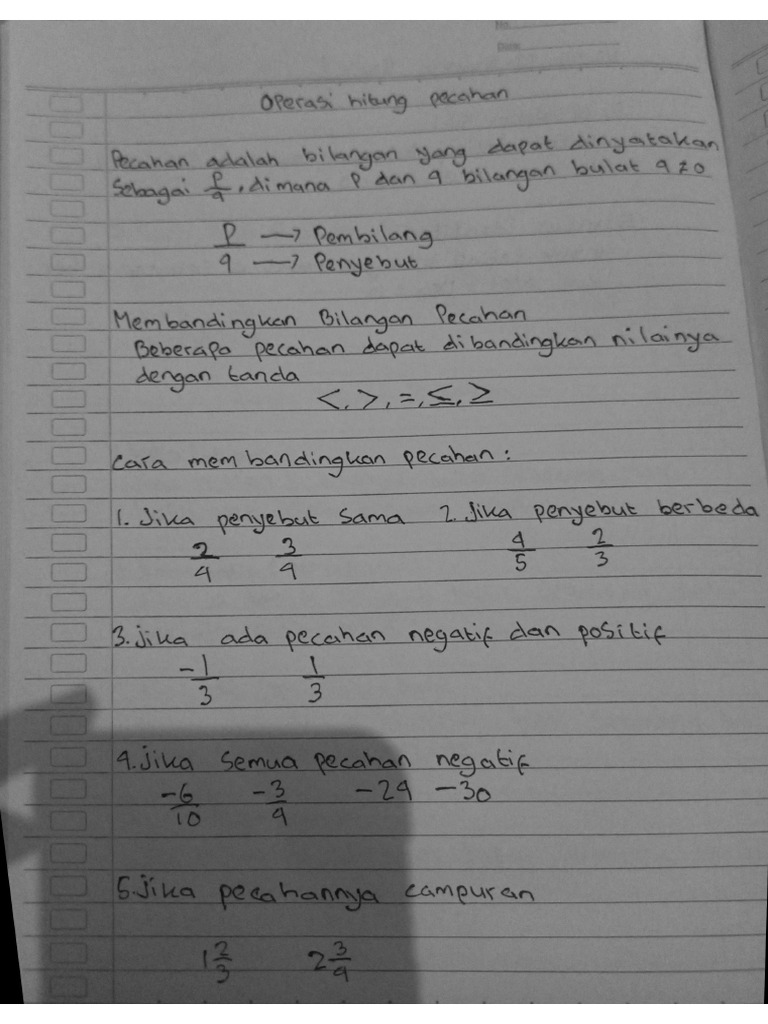 No.
Date
Operasi hitung pecahan
Pecahan adalah bilangan yang dapat dinyatakan
Sebagai p/q, dimana p dan q bilangan bulat q≠0
p → Pembilang
q → Penyebut
Membandingkan Bilangan Pecahan
Beberapa pecahan dapat dibandingkan nilainya
dengan tanda
<, >, =, ≤, ≥
Cara membandingkan pecahan :
1. Jika penyebut sama 2. Jika penyebut berbeda
2/4 3/4 4/5 2/3
3. Jika ada pecahan negatif dan positif
-1/3 1/3
4. Jika semua pecahan negatif
-6/10 -3/4 -24 -30
5. Jika pecahannya campuran
1 2/3 2 3/4